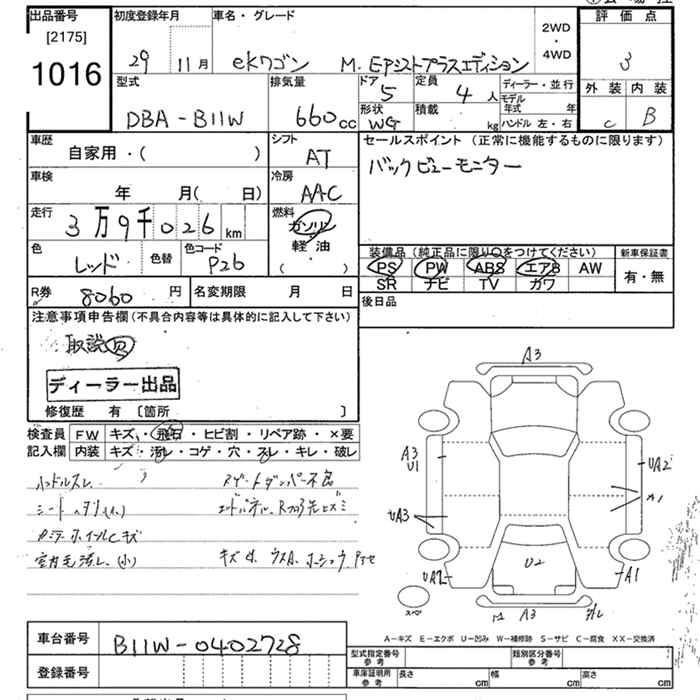 出品番号
[2175]
1016
初度登録年月
29 11月
車名・グレード
eKワゴン M.
2WD
・
4WD
評価点
3
外装 内装
C B
型式
DBA-B11W
排気量
660cc
ドア
5
定員
4人
ディーラー・並行
形状
WG
積載
kg
モデル年式 年
ハンドル 左・右
車歴
自家用・( )
シフト
AT
セールスポイント(正常に機能するものに限ります)
バックビューモニター
車検
年 月( 日)
冷房
AAC
走行
3万9千026km
燃料
ガソリン
軽油
( )
色
レッド
色替
色コード
P26
装備品(純正品に限り○をつけてください)
PS PW ABS エアB AW
SR ナビ TV カワ
新車保証書
有・無
R券
8060円
名変期限 月 日
後日品
注意事項申告欄(不具合内容等は具体的に記入して下さい)
取説
ディーラー出品
修復歴 有 [箇所 ]
検査員
記入欄
FW キズ・飛石・ヒビ割・リペア跡・×要
内装 キズ・汚レ・コゲ・穴・スレ・キレ・破レ
ハンドルスレ
A3
A3
U1
UA2
A1
UA3
UA2
U2
A1
A3
スペア
A-キズ E-エクボ U-凹み W-補修跡 S-サビ C-腐食 XX-交換済
車台番号
B11W-0402728
登録番号
型式指定番号
参考
類別区分番号
参考
車庫証明用
参考
長さ cm
幅 cm
高さ cm